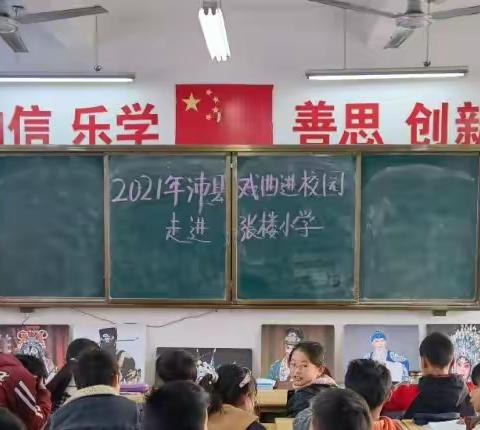 信 乐学 善思 创新
2021年沛县戏曲进校园
走进 张楼小学